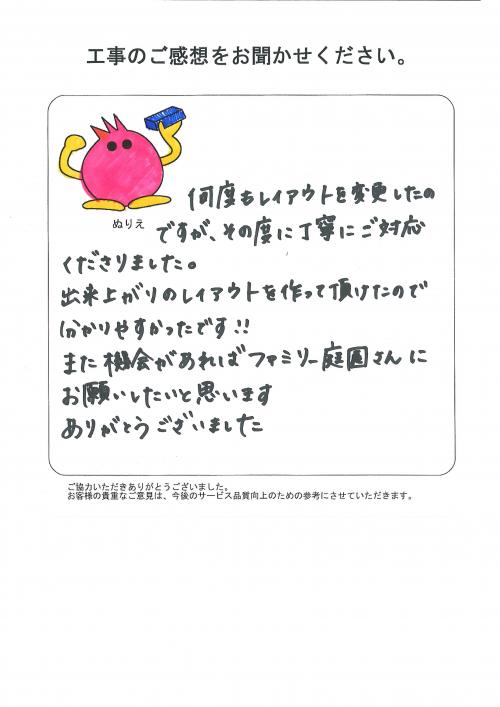 工事のご感想をお聞かせください。
ぬりえ
何度もレイアウトを変更したの
ですが、その度に丁寧にご対応
くださりました。
出来上がりのレイアウトを作って頂けたので
分かりやすかったです!!
また機会があればファミリー庭園さんに
お願いしたいと思います
ありがとうございました
ご協力いただきありがとうございました。
お客様の貴重なご意見は、今後のサービス品質向上のための参考にさせていただきます。